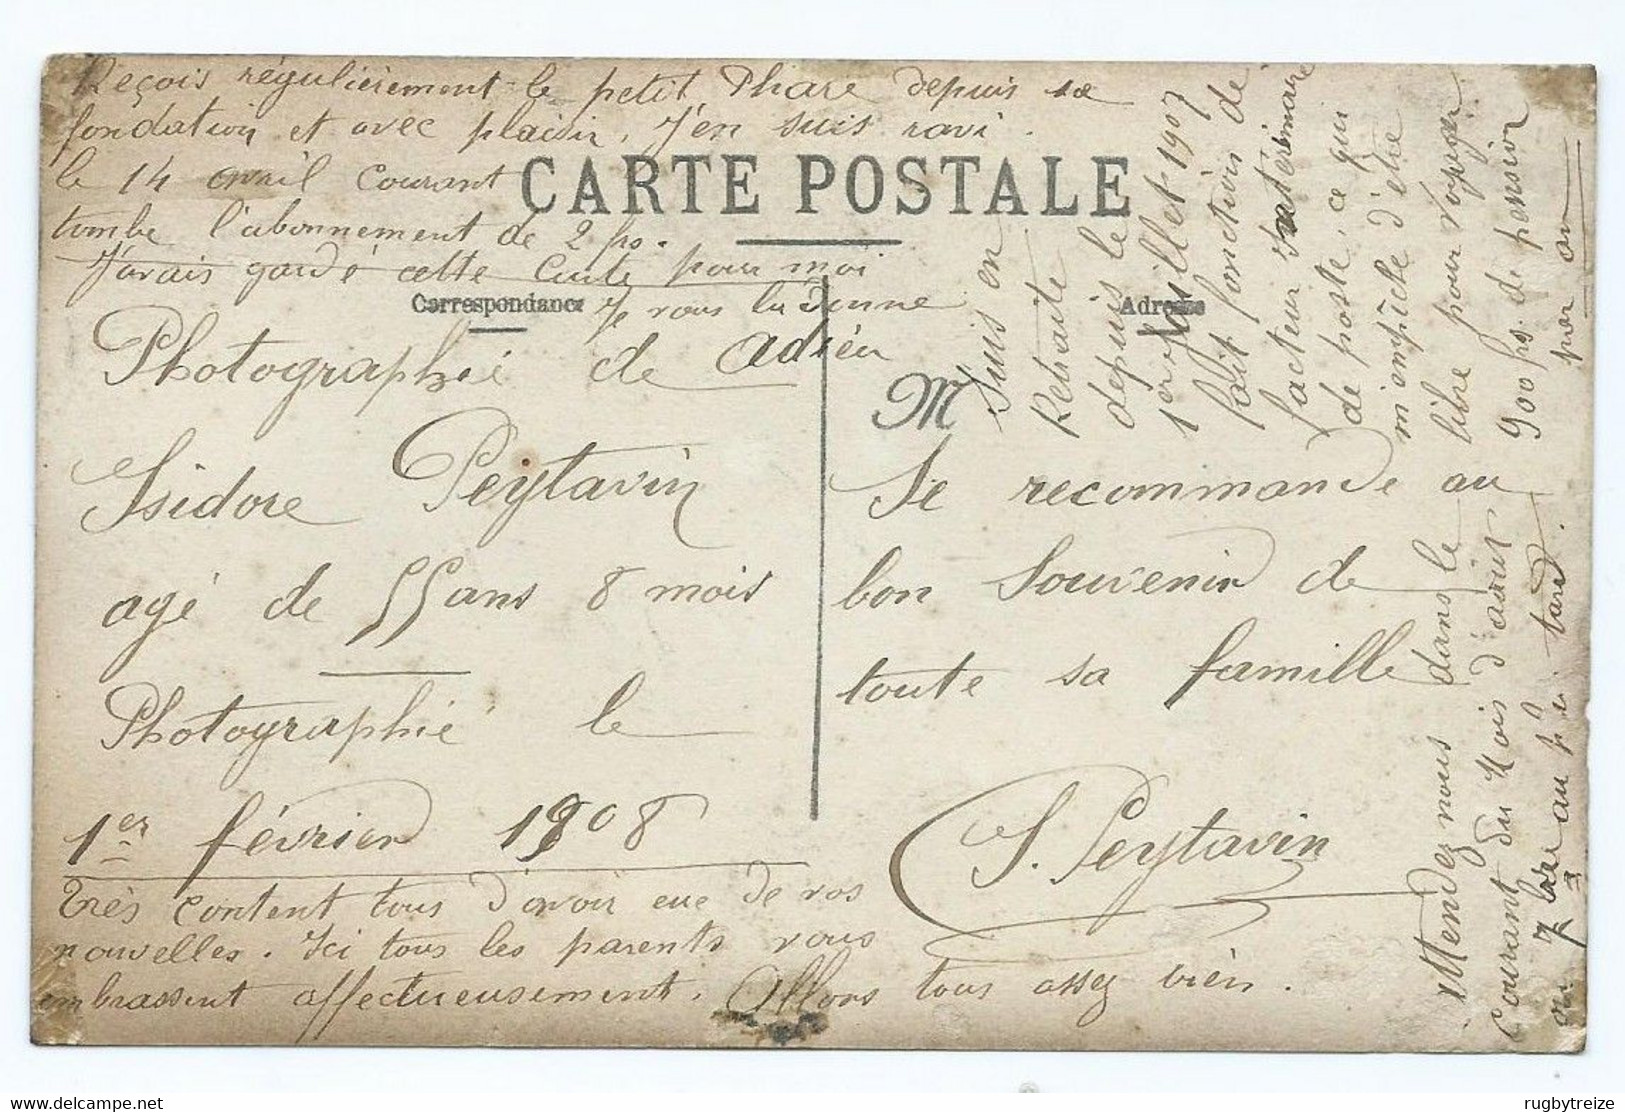 Reçois régulièrement le petit Phare depuis sa
fondation et avec plaisir, J'en suis ravi.
le 14 avril Courant
tombe l'abonnement de 2 frs.
J'avais gardé cette Carte pour moi
Je vous la donne
adièu
CARTE POSTALE
Correspondance
Adresse
Photographie de
Isidore Peytavin
agé de 55 ans 8 mois
Photographié le
1er février 1908
Très content tous d'avoir eue de vos
nouvelles. Ici tous les parents vous
embrassent affectueusement. Allons tous assez bièn.
M
Suis en
Retraite
depuis le
1er Juillet 1907
fait fonctions de
facteur Intérimaire
de poste, ce qui
m'empêche d'être
libre pour voyager
900 frs. de pension
par an
Se recommande au
bon Souvenir de
toute sa famille
I. Peytavin
Attendez nous dans le
Courant du Mois d'août
ou 7bre au plus tard.
rugbytreize